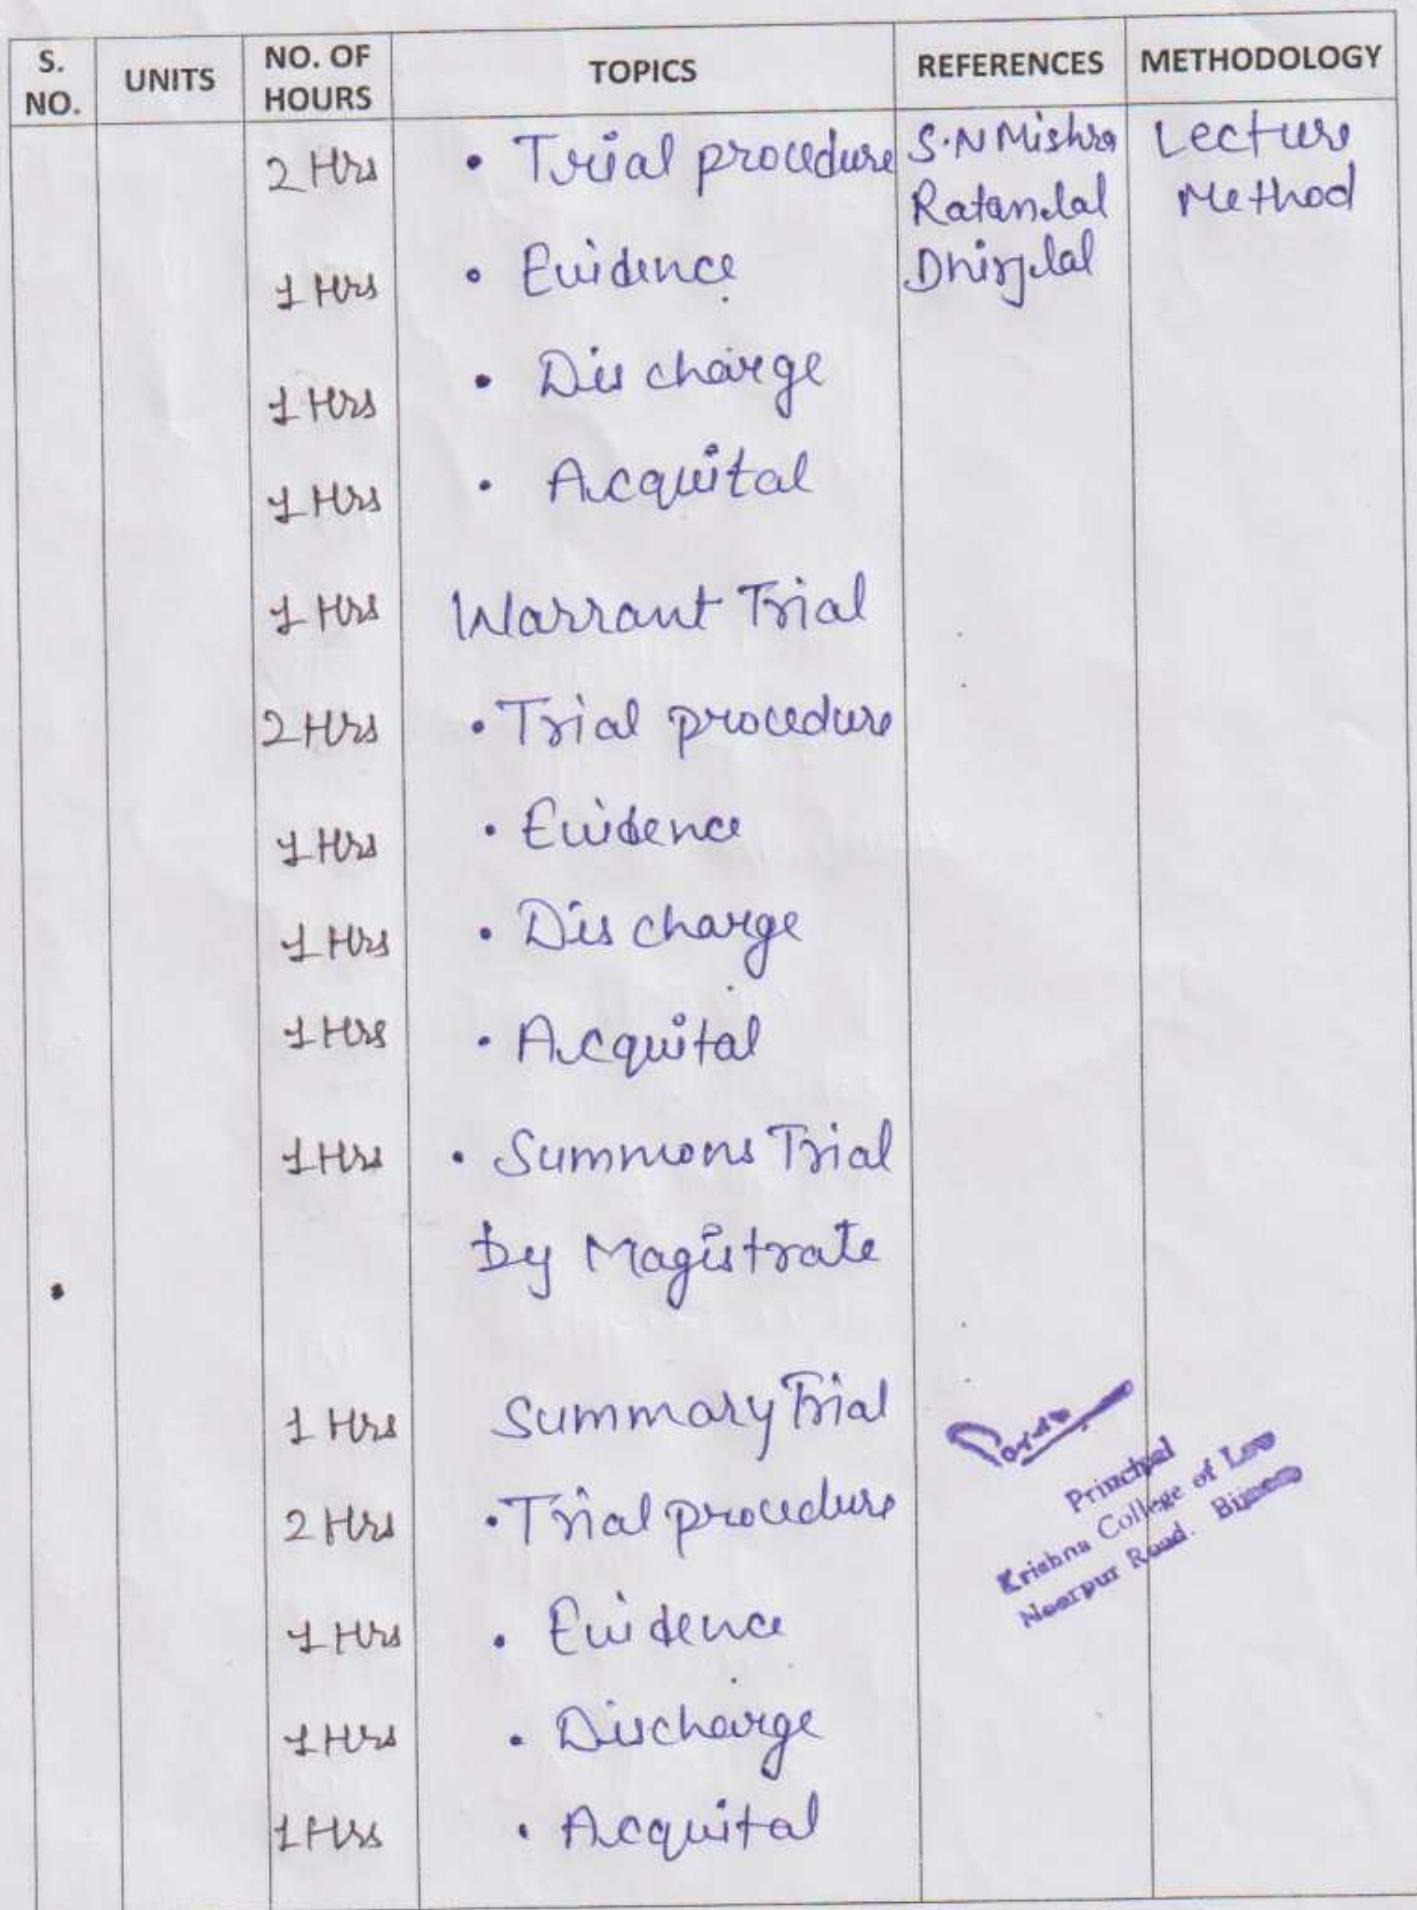 S. NO. UNITS NO. OF HOURS TOPICS REFERENCES METHODOLOGY
2 Hrs • Trial procedure S.N Mishra Lecture
Ratanlal Method
1 Hrs • Evidence Dhirjlal
1 Hrs • Discharge
1 Hrs • Acquital
1 Hrs Warrant Trial
2 Hrs • Trial procedure
1 Hrs • Evidence
1 Hrs • Discharge
1 Hrs • Acquital
1 Hrs • Summons Trial
by Magistrate
1 Hrs Summary Trial
2 Hrs • Trial procedure
1 Hrs • Evidence
1 Hrs • Discharge
1 Hrs • Acquital
Principal
Krishna College of Law
Noorpur Road.